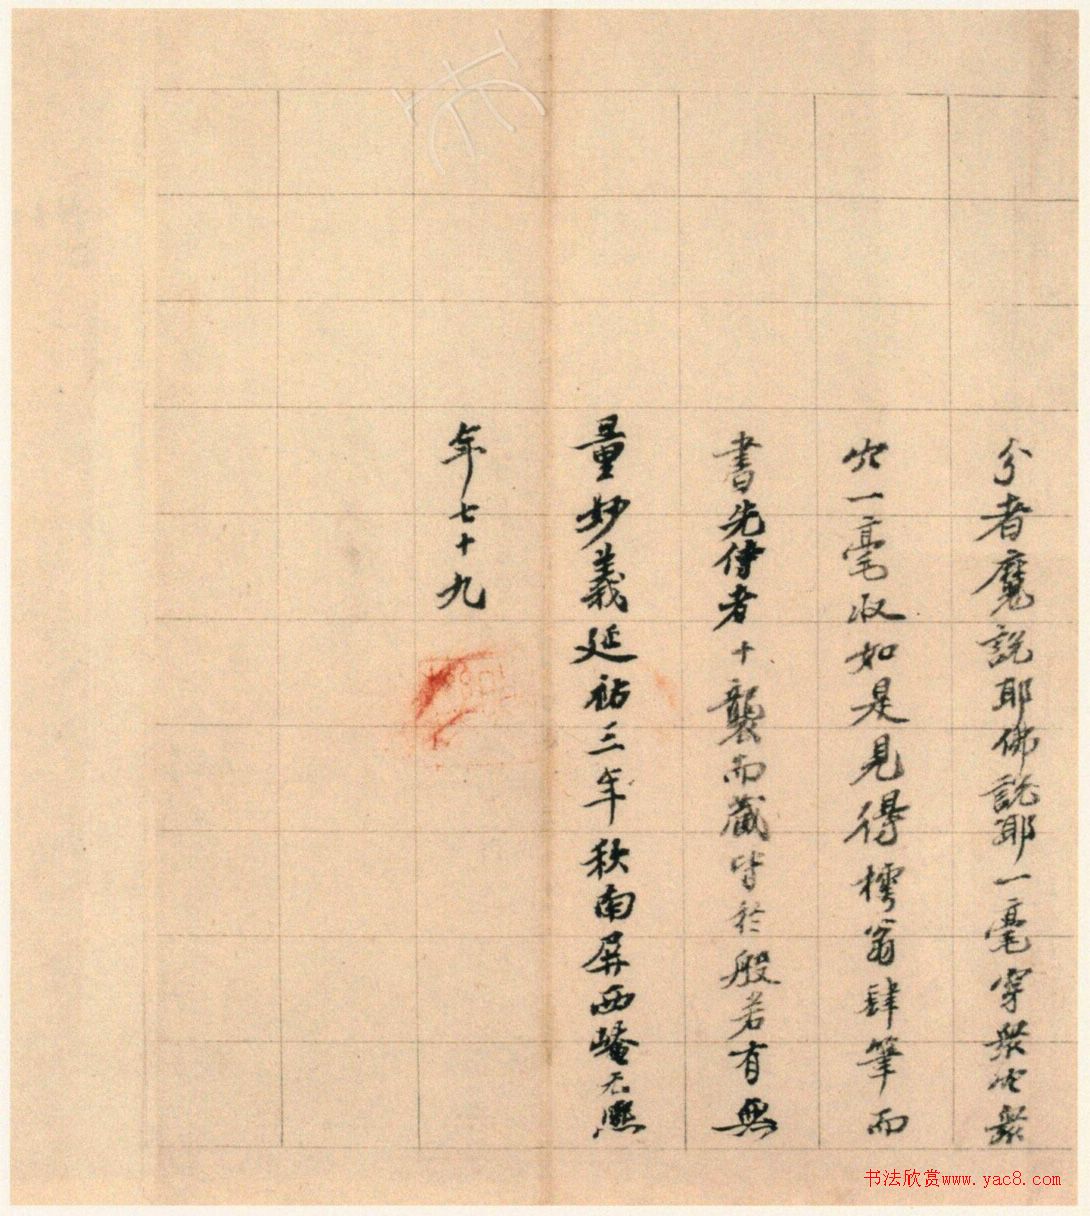 分者魔說耶佛說耶一毫穿眾穴眾
穴一毫收如是見得樗翁肆筆而
書先侍者十襲而藏皆於般若有無
量妙義延祐三年秋南屏西崦天熈
年七十九
书法欣赏www.yac8.com